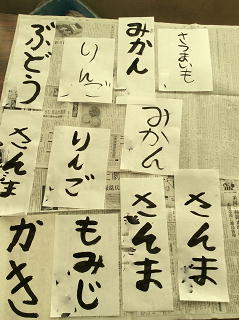 ぶどう
りんご
みかん
さつまいも
さんま
りんご
みかん
かき
もみじ
さんま
さんま